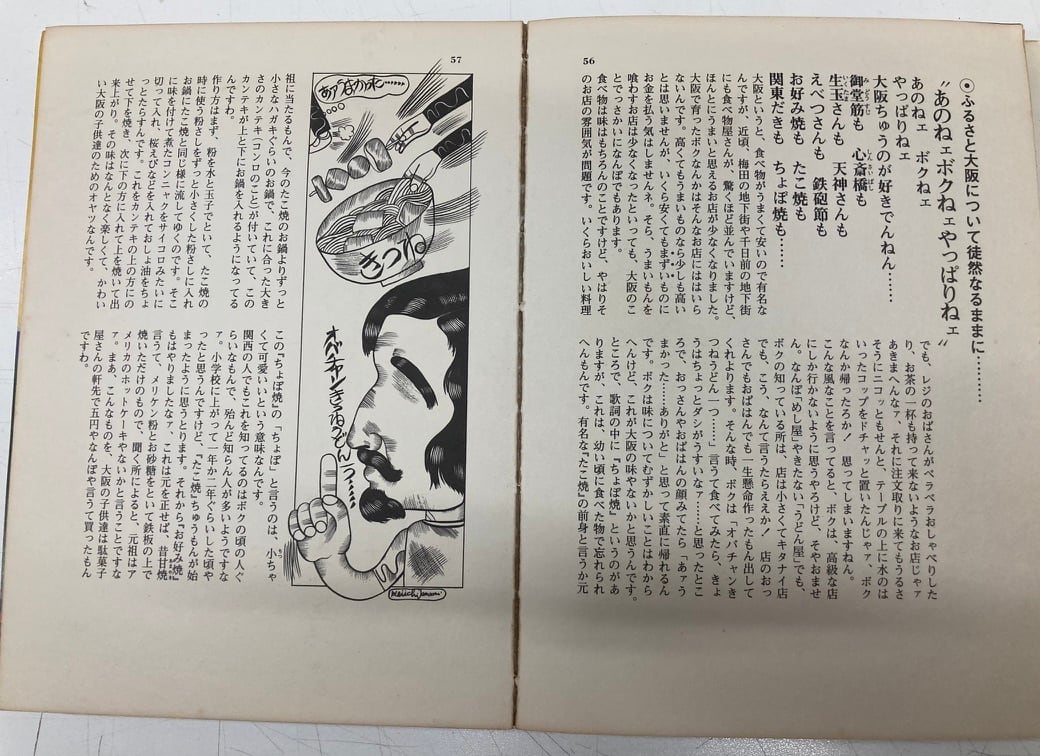 56
◉ふるさと大阪について徒然なるままに…………
〝あのねェボクねェやっぱりねェ〟
あのねェ　ボクねェ
やっぱりねェ
大阪ちゅうのが好きでんねん……
御堂筋も　心斎橋も
みどうすじ　しんさいばし
生玉さんも　天神さんも
いくたま
えべつさんも　鉄砲節も
お好み焼も　たこ焼も
関東だきも　ちょぼ焼も……
大阪というと、食べ物がうまくて安いので有名な
んですが、近頃、梅田の地下街や千日前の地下街
にも食べ物屋さんが、驚くほど並んでいますけど、
ほんとにうまいと思えるお店が少なくなりました。
大阪で育ったボクなんかはそんなお店にははいら
ないんです。高くてもうまいものなら少しも高い
とは思いませんが、いくら安くてもまずいものに
お金を払う気はしませんネ。そら、うまいもんを
喰わすお店は少なくなったといっても、大阪のこ
とでっさかいになんぼでもあります。
食べ物は味はもちろんのことですけど、やはりそ
のお店の雰囲気が問題です。いくらおいしい料理
でも、レジのおばさんがペラペラおしゃべりした
り、お茶の一杯も持って来ないようなお店じゃァ
あきまへんなァ。それに注文取りに来てもうるさ
そうにニコッともせんと、テーブルの上に水のは
いったコップをドチャッと置いたんじゃァ、ボク
なんか帰ったろか！　思ってしまいますねん。
こんな風なことを言ってると、ボクは、高級な店
にしか行かないように思うやろけど、そやおませ
ん。なんぼ「めし屋」やきたない「うどん屋」でも、
ボクの知っている所は、店は小さくてキタナイ店
でも、こう、なんて言うたらええか！　店のおっ
さんでもおばはんでも一生懸命作ったもん出して
くれよります。そんな時、ボクは「オバチャンき
つねうどん一つ……」言うて食べてみたら、きょ
うはちょっとダシがうすいなァ……と思ったとこ
ろで、おっさんやおばはんの顔みてたら「あァう
まかった……ありがと」と思って素直に帰れるん
です。ボクは味についてむずかしいことはわから
へんけど、これが大阪の味やないかと思うんです。
ところで、歌詞の中に『ちょぼ焼』というのがあ
りますが、これは、幼い頃に食べた物で忘れられ
へんもんです。有名な『たこ焼』の前身と言うか元
57
祖に当たるもんで、今のたこ焼のお鍋よりずっと
小さなハガキぐらいのお鍋で、これに合った大き
さのカンテキ（コンロのこと）が付いていて、この
カンテキが上と下にお鍋を入れるようになってる
んですわ。
作り方はまず、粉を水と玉子でといて、たこ焼の
時に使う粉さしをずっと小さくした粉さしに入れ
お鍋にたこ焼と同じ様に流してゆくのです。そこ
に味を付けて煮たコンニャクをサイコロみたいに
切って入れ、桜えびなどを入れておしょ油をちょ
っとたらすんです。これをカンテキの上の方にの
せて下を焼き、次に下の方に入れて上を焼いて出
来上がり。その味はなんとなく楽しくて、かわい
い大阪の子供達のためのオヤツなんです。
この『ちょぼ焼』の「ちょぼ」と言うのは、小ちゃ
くて可愛いいという意味なんです。
関西の人でもこれを知ってるのはボクの頃の人ぐ
らいなもんで、殆んど知らん人が多いようですな
ァ。小学校に上がって一年か二年ぐらいした頃や
ったと思うんですけど、『たこ焼』ちゅうもんが始
まったように思うとります。それから『お好み焼』
もはやりましたなァ、これは元を正せば、昔甘焼
言うて、メリケン粉とお砂糖をといて鉄板の上で
焼いただけのもので、聞く所によると、元祖はア
メリカのホットケーキやないかと言うことですな
ァ。まあ、こんなものを、大阪の子供達は駄菓子
屋さんの軒先で五円やなんぼや言うて買ったもん
ですわ。
きつね
オバチャーンきつねうどん一つ……